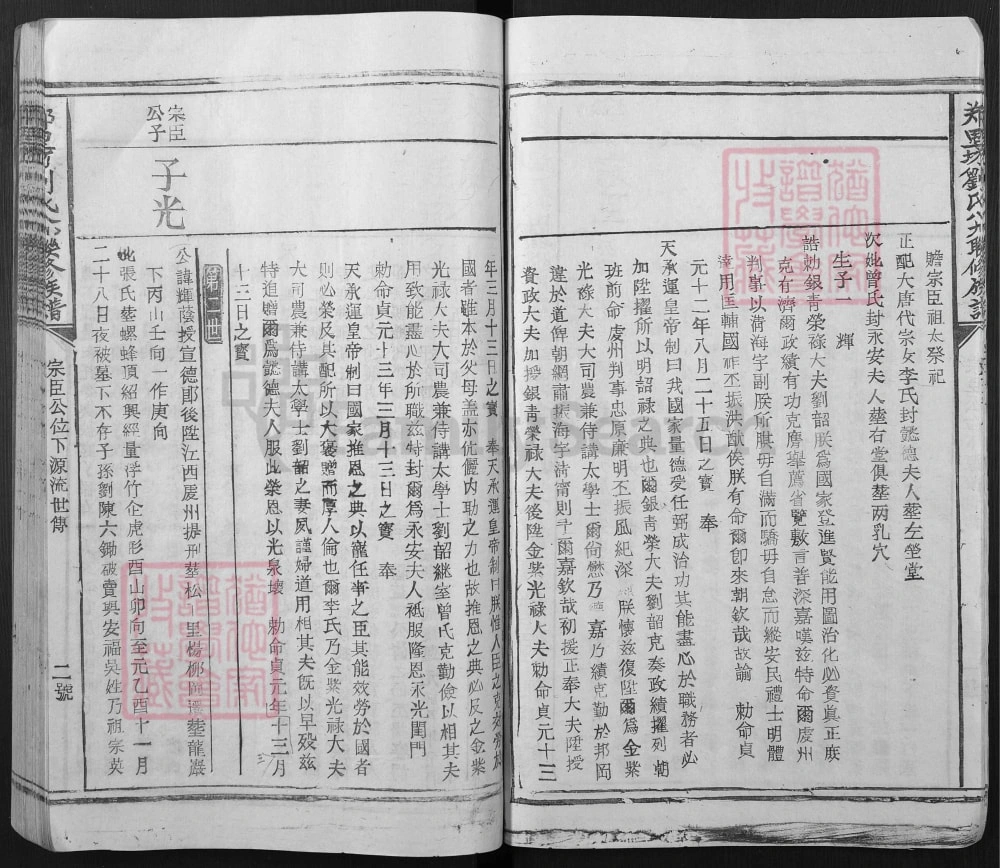 贍宗臣祖太祭祀
正配大唐代宗女李氏封懿德夫人塟左塋堂
次妣曾氏封永安夫人塟右堂俱塟两乳穴
生子一 煇
誥勅銀青榮祿大夫劉韶朕為國家登進賢能用圖治化必資真正
克有濟爾政績有功克膺舉薦省覽敷言善深嘉嘆兹特命爾虔州
判事以淸海宇副朕所賦毋自滿而驕毋自怠而縱安民禮士明體
達用匡輔國祚丕振洪猷俟朕有命爾卽來朝欽哉故諭 勅命貞
元十二年八月二十五日之寶 奉
天承運皇帝制曰我國家量德受任弼成治功其能盡心於職務者必
加陞擢所以明詔祿之典也爾銀青榮大夫劉韶克奏政績擢列朝
班前命虔州判事忠原廉明丕振風紀深 朕懷兹復陞爾為金紫
光祿大夫大司農兼侍講太學士爾尙懋乃 嘉乃績克勤於邦罔
違於道俾朝綱肅振海宇清甯則予爾嘉欽哉初授正奉大夫陞授
資政大夫加授銀青榮祿大夫後陞金紫光祿大夫勅命貞元十三
年三月十三日之寶 奉天承運皇帝制曰朕惟人臣之克效勞於
國者雖本於父母蓋亦伉儷内助之力也故推恩之典必反之金紫
光祿大夫大司農兼侍講太學士劉韶継室曾氏克勤儉以相其夫
用致能盡心於所職兹特封爾為永安夫人祗服隆恩永光閨門
勅命貞元十三年三月十三日之寶 奉
天承運皇帝制曰國家推恩之典以寵任事之臣其能效勞於國者
則必榮及其配所以大褒贈而厚人倫也爾李氏乃金紫光祿大夫
大司農兼侍講太學士劉韶之妻夙謹婦道用相其夫旣以早歿兹
特追贈爾為懿德夫人服此榮恩以光泉壤 勅命貞元年十三月
十三日之寶
第一世
宗臣
公子
子光
公諱煇蔭授宣德郎後陞江西慶州提刑塟松 里楊柳 塟龍巖
下丙山壬向一作庚向
妣張氏塟螺蜂頂紹興經量浮竹仚虎形酉山卯向至元乙酉十一月
二十八日夜被墓下不存子孫劉陳六鋤破賣與安福吳姓乃祖宗英
宗臣公位下源流世傳
二號